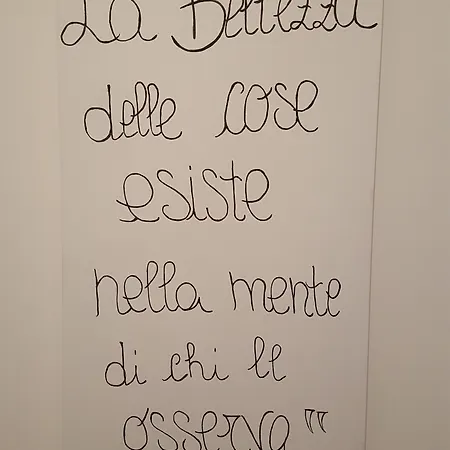 La Bellezza
delle cose
esiste
nella mente
di chi le
osserva"